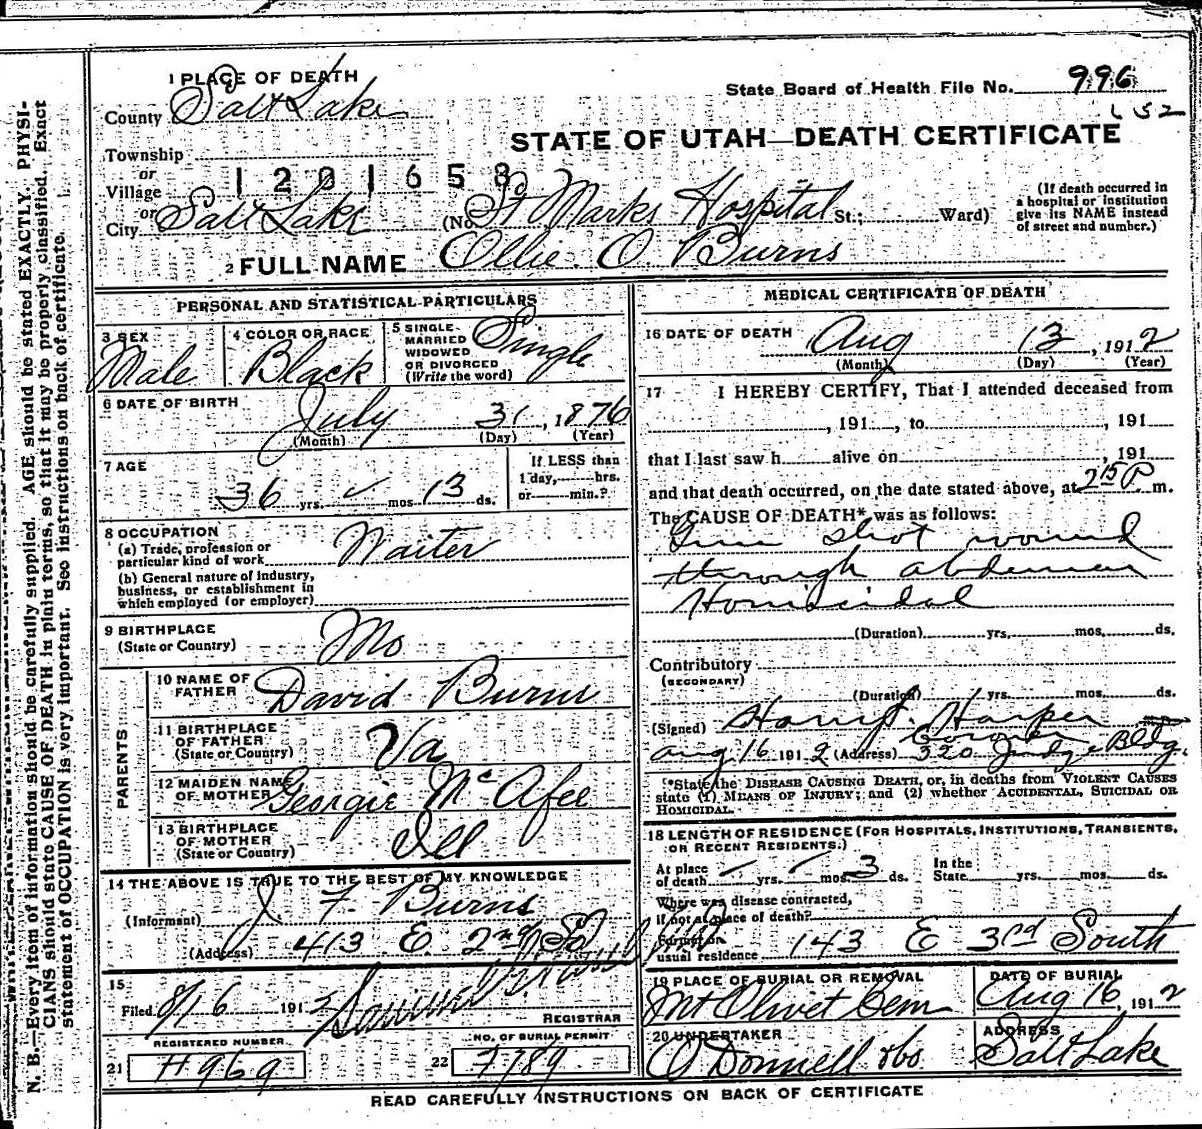 1 PLACE OF DEATH
County Salt Lake
State Board of Health File No. 996
652
STATE OF UTAH—DEATH CERTIFICATE
Township
or
Village
1201658
or
City Salt Lake (No. St Marks Hospital St.; Ward)
(If death occurred in a hospital or institution give its NAME instead of street and number.)
2 FULL NAME Ollie O. Burns
PERSONAL AND STATISTICAL PARTICULARS
3 SEX Male
4 COLOR OR RACE Black
5 SINGLE MARRIED WIDOWED OR DIVORCED (Write the word) Single
6 DATE OF BIRTH
July 31, 1876
(Month) (Day) (Year)
7 AGE
36 yrs. mos. 13 ds.
If LESS than 1 day, hrs. or min.?
8 OCCUPATION
(a) Trade, profession or particular kind of work Waiter
(b) General nature of industry, business, or establishment in which employed (or employer)
9 BIRTHPLACE
(State or Country) Mo
PARENTS
10 NAME OF FATHER David Burns
11 BIRTHPLACE OF FATHER (State or Country) Va
12 MAIDEN NAME OF MOTHER Georgie McAfee
13 BIRTHPLACE OF MOTHER (State or Country) Ill
14 THE ABOVE IS TRUE TO THE BEST OF MY KNOWLEDGE
(Informant) J F. Burns
(Address) 413 E. 2nd So
15
Filed 8/16 1912
REGISTRAR
REGISTERED NUMBER
21 H969
NO. OF BURIAL PERMIT
22 7789
MEDICAL CERTIFICATE OF DEATH
16 DATE OF DEATH
Aug 13, 1912
(Month) (Day) (Year)
17 I HEREBY CERTIFY, That I attended deceased from
, 191 , to , 191
that I last saw h alive on , 191
and that death occurred, on the date stated above, at 2 15 P m.
The CAUSE OF DEATH* was as follows:
Gun shot wound
through abdomen
Homicidal
(Duration) yrs. mos. ds.
Contributory
(SECONDARY)
(Duration) yrs. mos. ds.
(Signed) Harry J. Harper
Coroner
Aug 16 1912 (Address) 320 Judge Bldg.
*State the DISEASE CAUSING DEATH, or, in deaths from VIOLENT CAUSES
state (1) MEANS OF INJURY; and (2) whether ACCIDENTAL, SUICIDAL OR
HOMICIDAL.
18 LENGTH OF RESIDENCE (FOR HOSPITALS, INSTITUTIONS, TRANSIENTS,
OR RECENT RESIDENTS.)
At place of death yrs. mos. 3 ds. In the State yrs. mos. ds.
Where was disease contracted,
if not at place of death?
Former or usual residence 143 E 3rd South
19 PLACE OF BURIAL OR REMOVAL
Mt Olivet Cem
DATE OF BURIAL
Aug 16, 1912
20 UNDERTAKER
O'Donnell & Co
ADDRESS
Salt Lake
READ CAREFULLY INSTRUCTIONS ON BACK OF CERTIFICATE
N. B.—Every item of information should be carefully supplied. AGE should be stated EXACTLY. PHYSI-
CIANS should state CAUSE OF DEATH in plain terms, so that it may be properly classified. Exact
statement of OCCUPATION is very important. See instructions on back of certificate.